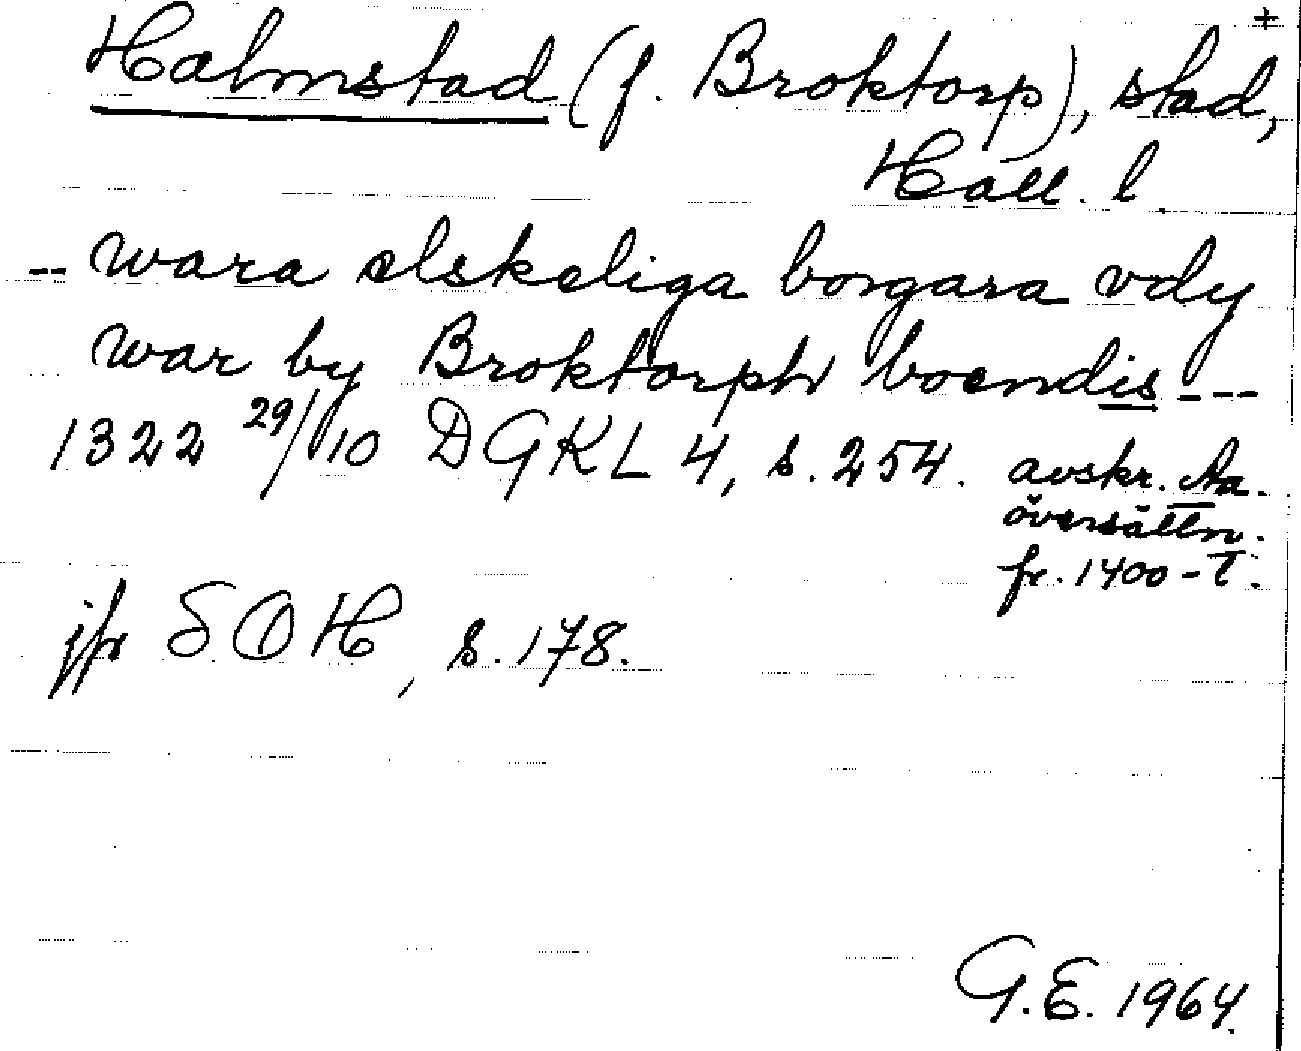 +
Halmstad (f. Broktorp), stad,
Hall. l.
-- wara elskeliga borgara vdy
war by Broktorph boendis ---
1322 29/10 DGKL 4, s. 254. avskr. Aa.
översättn.
fr. 1400-t.
jfr SOH, s. 178.
G.E. 1964.